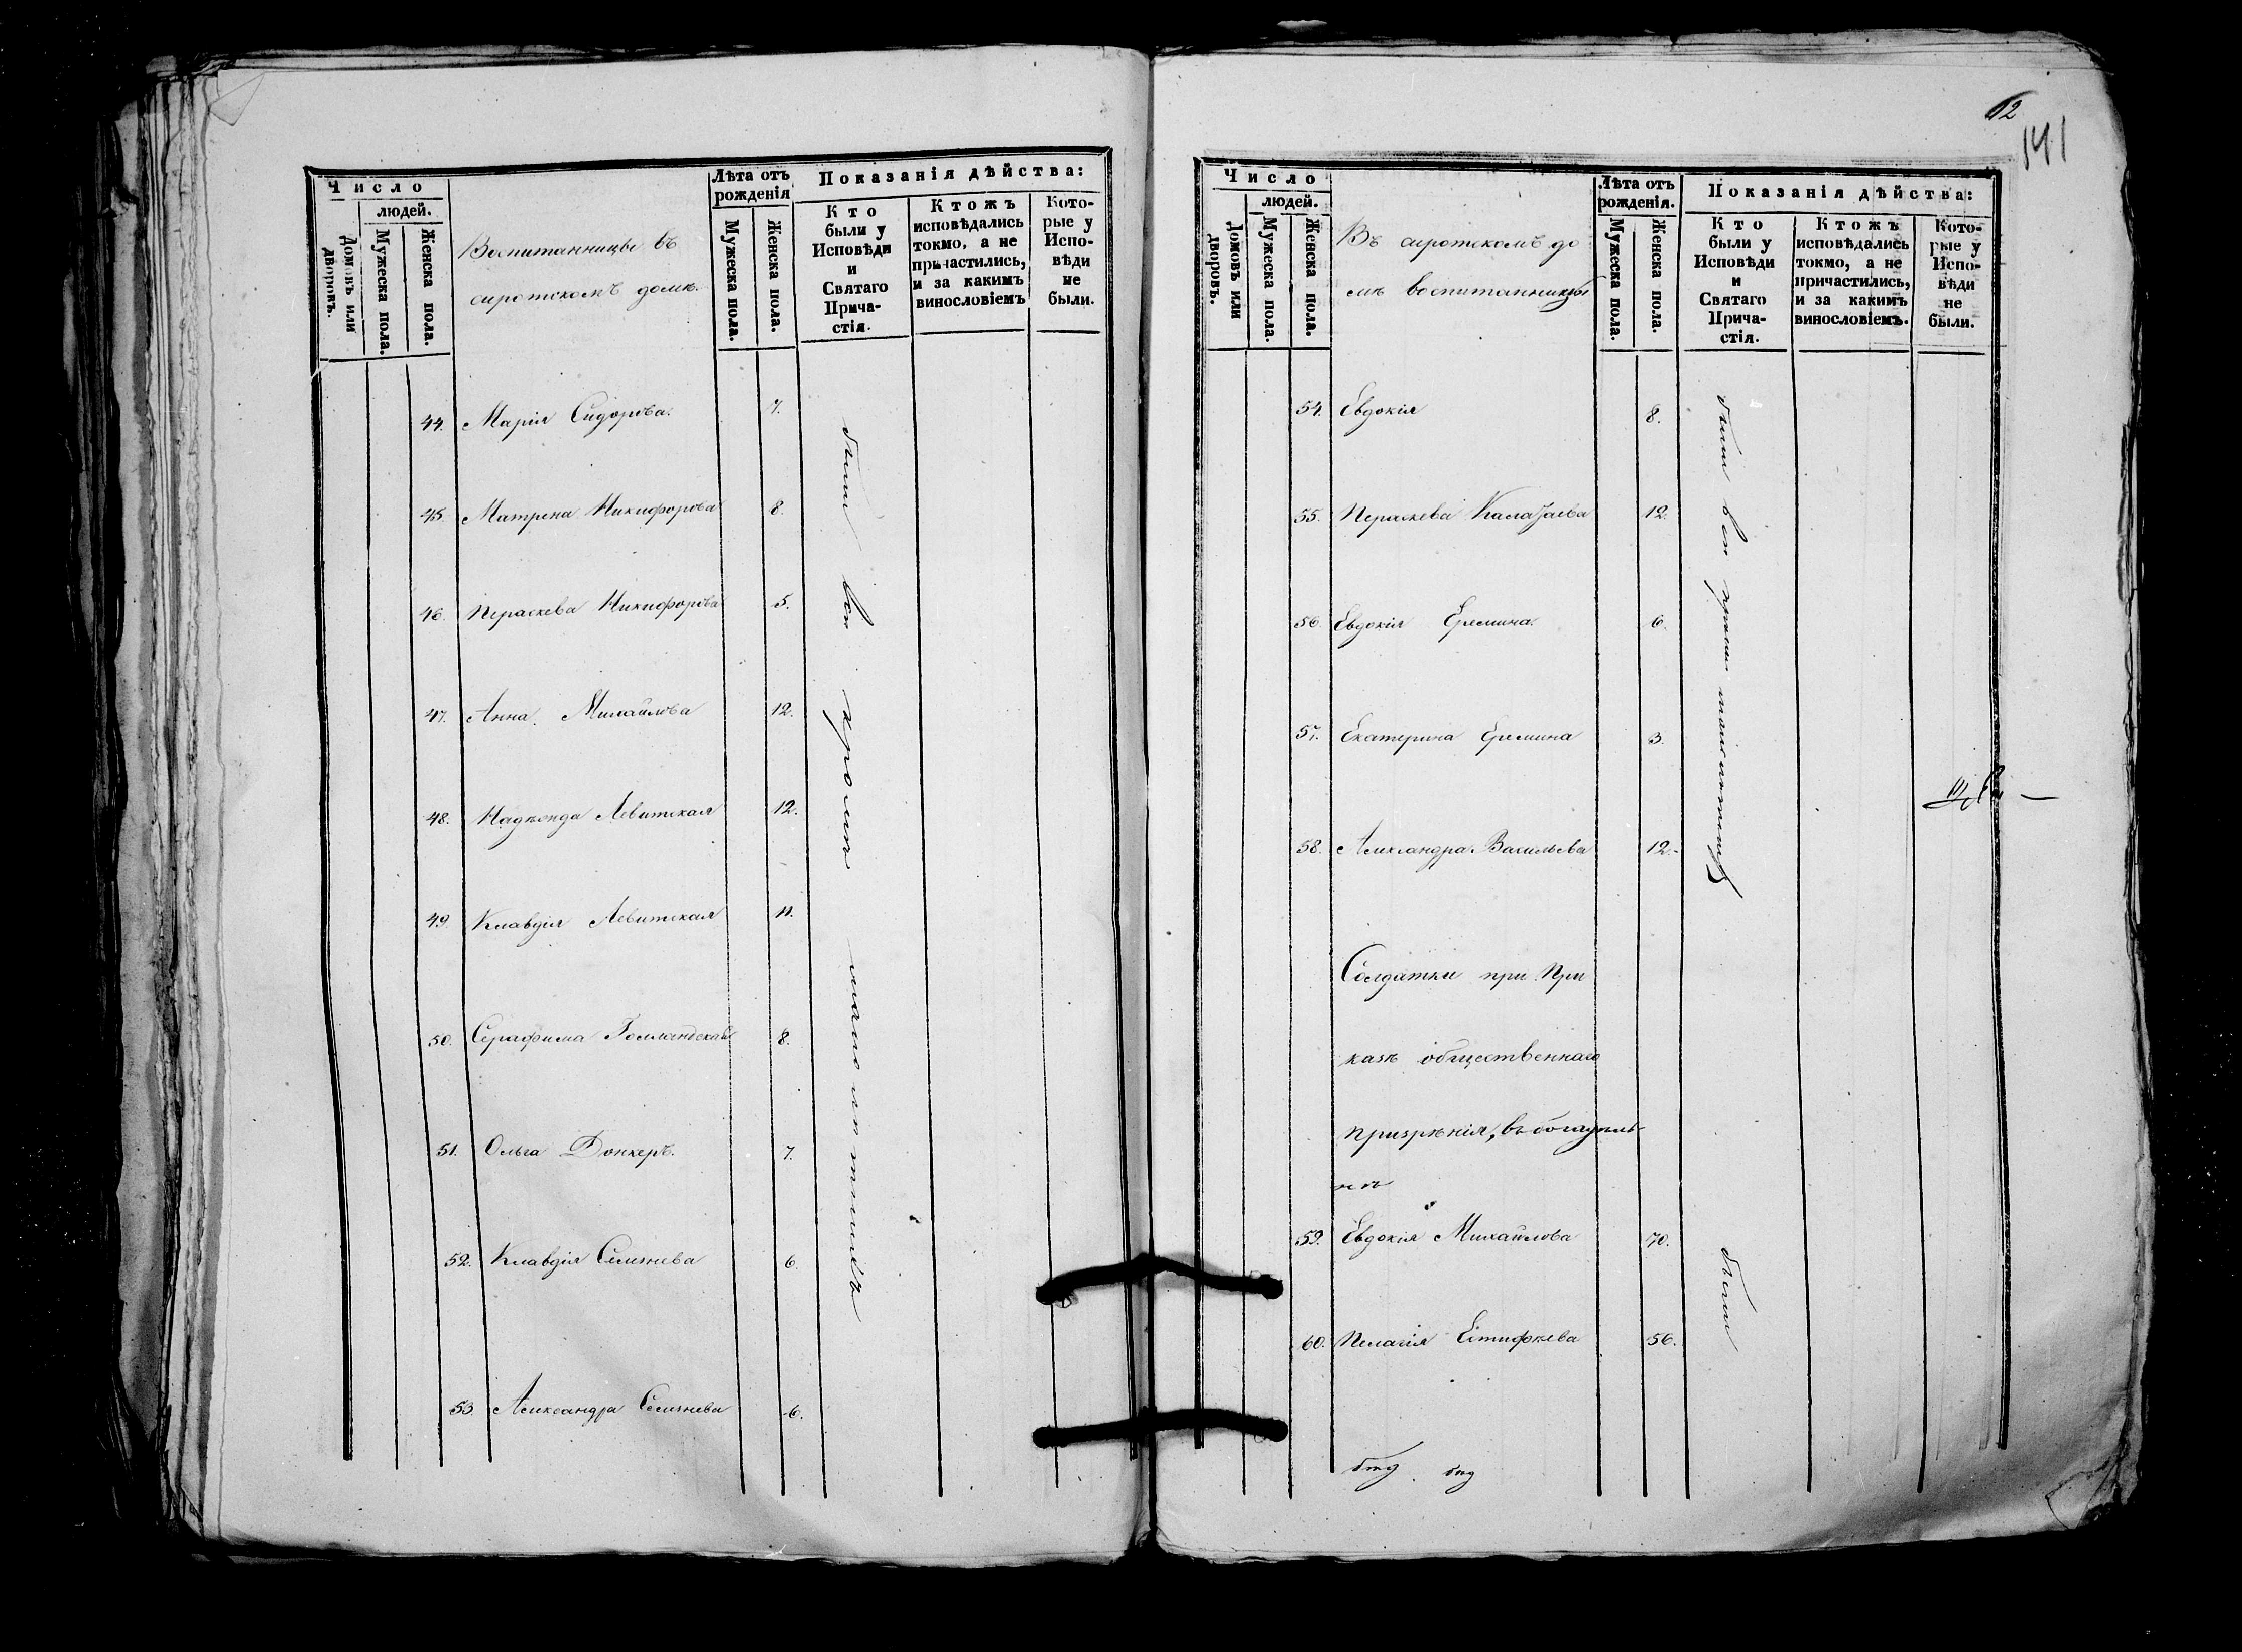 Число
людей.
Домовъ или дворовъ.
Мужеска пола.
Женска пола.
Воспитанницы въ
сиротскомъ доме.
Лѣта отъ рожденія
Мужеска пола.
Женска пола.
Показанія дѣйства:
Кто были у Исповѣди и Святаго Причастія.
Ктожъ исповѣдались токмо, а не причастились, и за какимъ винословіемъ
Которые у Исповѣди не были.
44. Марія Сидорова. 7.
45. Матрена Никифорова 8.
46. Параскева Никифорова 5.
47. Анна Михайлова 12.
48. Надежда Левитская 12.
49. Клавдія Левитская 11.
50. Серафима Голландская 8.
51. Ольга Донкеръ. 7.
52. Клавдія Селезнева 6.
53. Александра Селезнева 6.
были все кромѣ малолѣтнихъ
12
141
Число
людей.
Домовъ или дворовъ.
Мужеска пола.
Женска пола.
Въ сиротскомъ до
мѣ воспитанницы
Лѣта отъ рожденія.
Мужеска пола.
Женска пола.
Показанія дѣйства:
Кто были у Исповѣди и Святаго Причастія.
Ктожъ исповѣдались токмо, а не причастились, и за какимъ винословіемъ.
Которые у Исповѣди не были.
54. Евдокія 8.
55. Параскева 12.
56. Евдокія Еремина. 6.
57. Екатерина Еремина 3.
58. Александра Васильева 12.
были все кромѣ малолѣтнихъ
Солдатки при При
казѣ общественнаго
призрѣнія, въ богадѣль
нѣ
59. Евдокія Михайлова 70.
60. Пелагія Естифѣева 56.
были